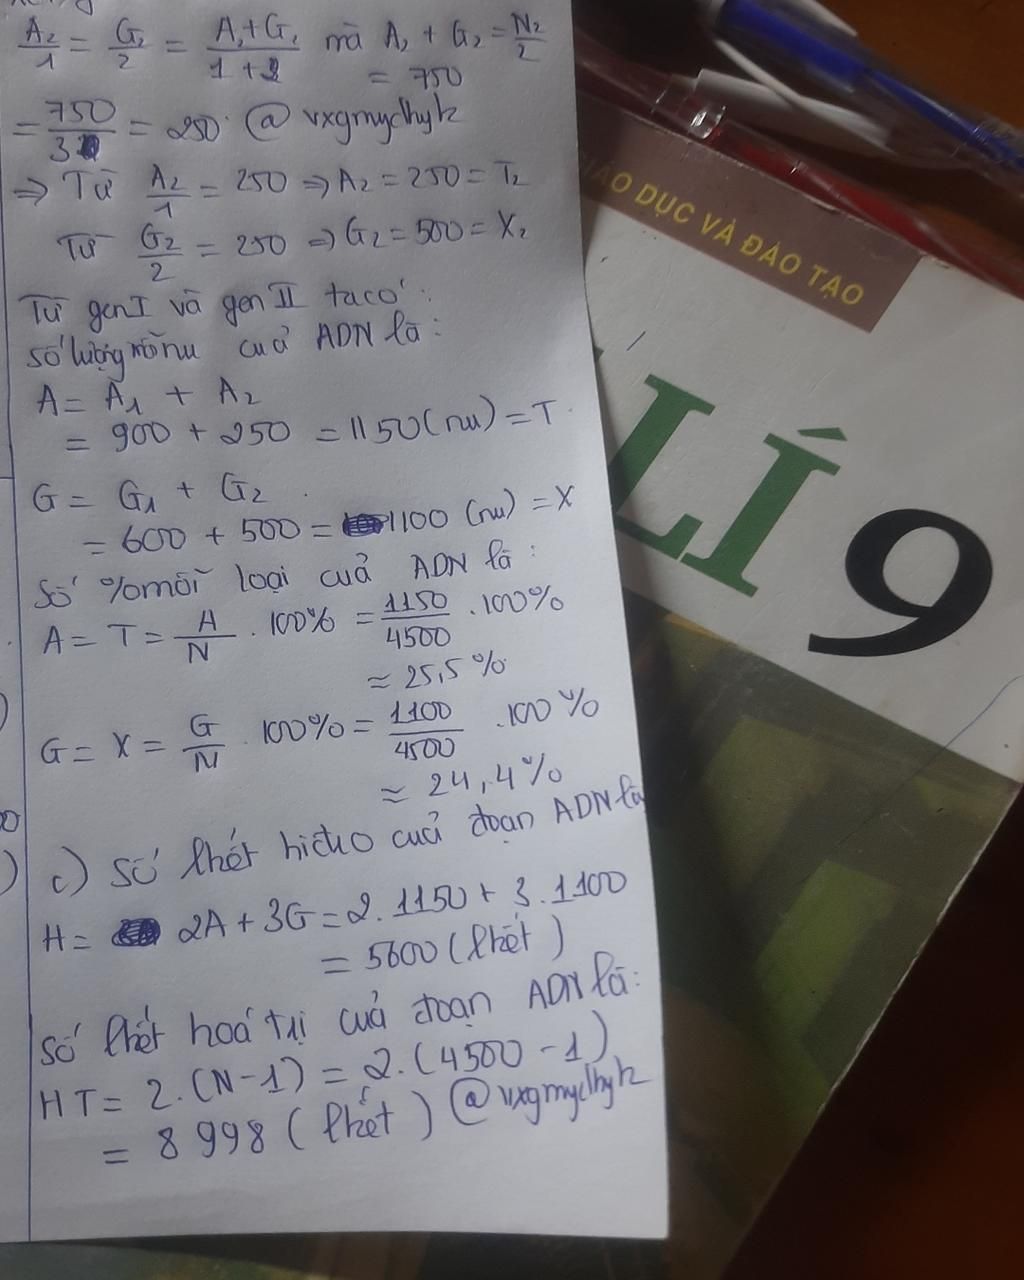 A₂/1 = G₂/2 = A₂+G₂/1+2 mà A₂ + G₂ = N₂/2
= 750
= 750/3 = 250 @vxgmyclhyk
=> Từ A₂/1 = 250 => A₂ = 250 = T₂
Từ G₂/2 = 250 => G₂ = 500 = X₂
Từ gen I và gen II ta có:
số lượng mỗi nu của ADN là:
A = A₁ + A₂
= 900 + 250 = 1150 (nu) = T
G = G₁ + G₂
= 600 + 500 = 1100 (nu) = X
Số % mỗi loại của ADN là:
A = T = A/N . 100% = 1150/4500 . 100%
≈ 25,5%
G = X = G/N . 100% = 1100/4500 . 100%
≈ 24,4%
c) Số lkết hiđro của đoạn ADN là
H = 2A + 3G = 2.1150 + 3.1100
= 5600 (lkết)
Số lkết hoá trị của đoạn ADN là:
HT = 2.(N-1) = 2.(4500-1)
= 8998 (lkết) @vxgmyclhyk
GIÁO DỤC VÀ ĐÀO TẠO
LÍ 9